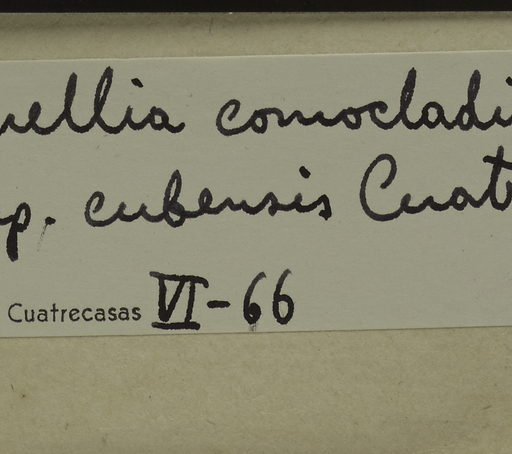 uellia comocladi
sp. cubensis Cuat
Cuatrecasas VI-66